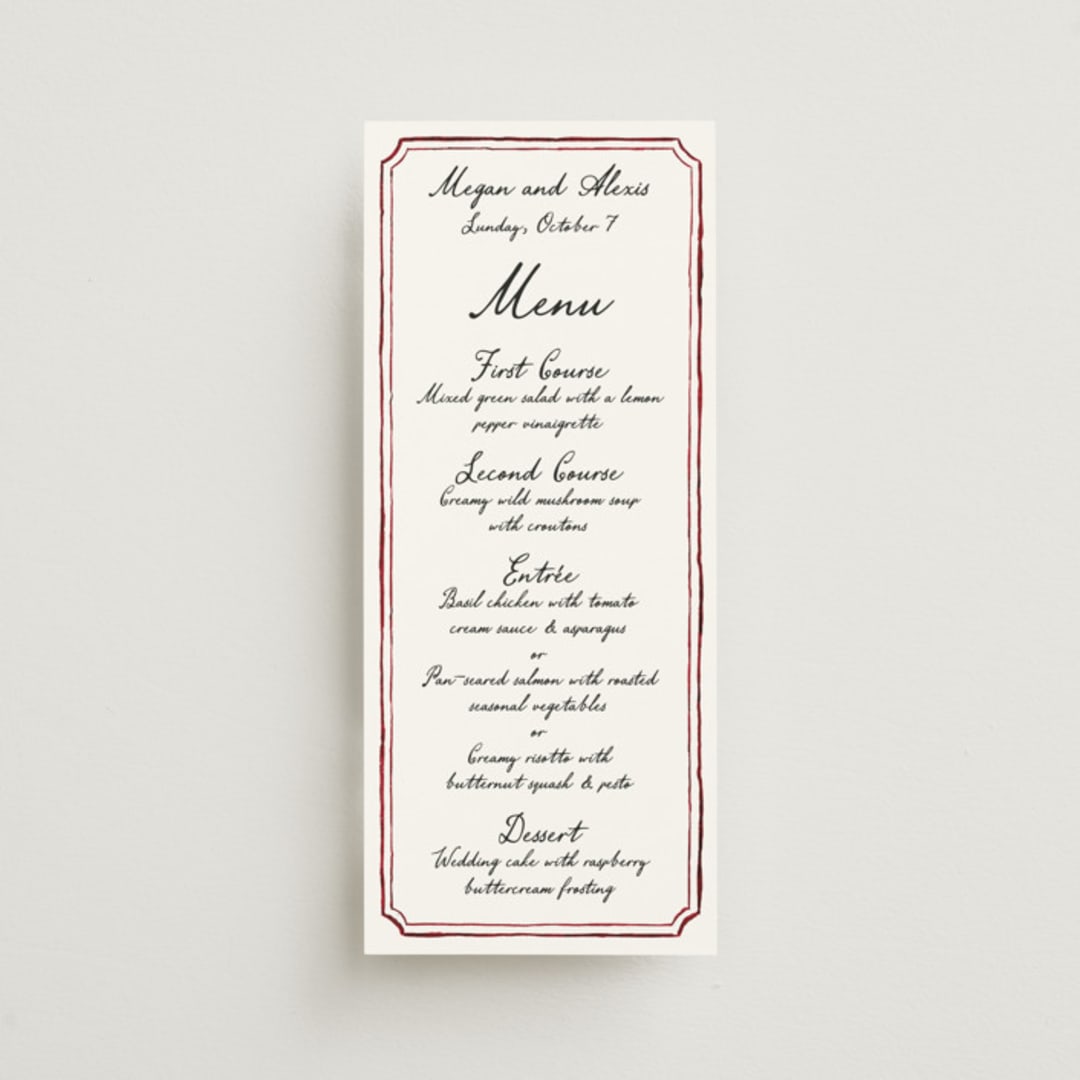 Megan and Alexis
Sunday, October 7
Menu
First Course
Mixed green salad with a lemon
pepper vinaigrette
Second Course
Creamy wild mushroom soup
with croutons
Entrée
Basil chicken with tomato
cream sauce & asparagus
or
Pan-seared salmon with roasted
seasonal vegetables
or
Creamy risotto with
butternut squash & pesto
Dessert
Wedding cake with raspberry
buttercream frosting